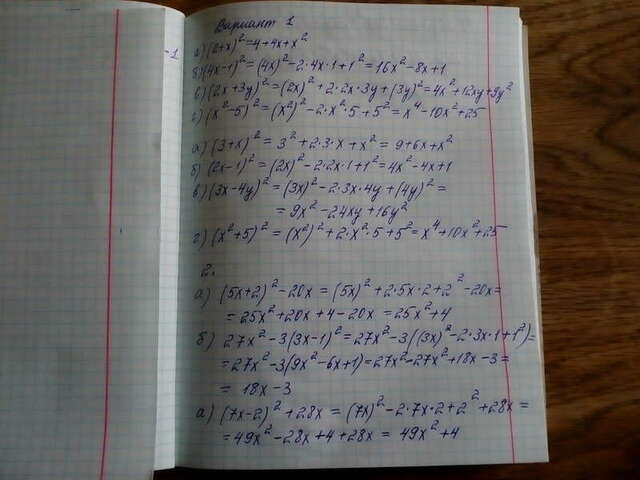 -1
Вариант 1
а) (2+x)² = 4+4x+x²
б) (4x-1)² = (4x)² - 2·4x·1+1² = 16x² - 8x+1
в) (2x+3y)² = (2x)² + 2·2x·3y + (3y)² = 4x² + 12xy + 9y²
г) (x²-5)² = (x²)² - 2·x²·5 + 5² = x⁴ - 10x² + 25
а) (3+x)² = 3² + 2·3·x + x² = 9+6x+x²
б) (2x-1)² = (2x)² - 2·2x·1+1² = 4x² - 4x+1
в) (3x-4y)² = (3x)² - 2·3x·4y + (4y)² =
= 9x² - 24xy + 16y²
г) (x²+5)² = (x²)² + 2·x²·5 + 5² = x⁴ + 10x² + 25
2.
а) (5x+2)² - 20x = (5x)² + 2·5x·2 + 2² - 20x =
= 25x² + 20x + 4 - 20x = 25x² + 4
б) 27x² - 3(3x-1)² = 27x² - 3((3x)² - 2·3x·1+1²) =
= 27x² - 3(9x² - 6x+1) = 27x² - 27x² + 18x - 3 =
= 18x - 3
а) (7x-2)² + 28x = (7x)² - 2·7x·2 + 2² + 28x =
= 49x² - 28x + 4 + 28x = 49x² + 4